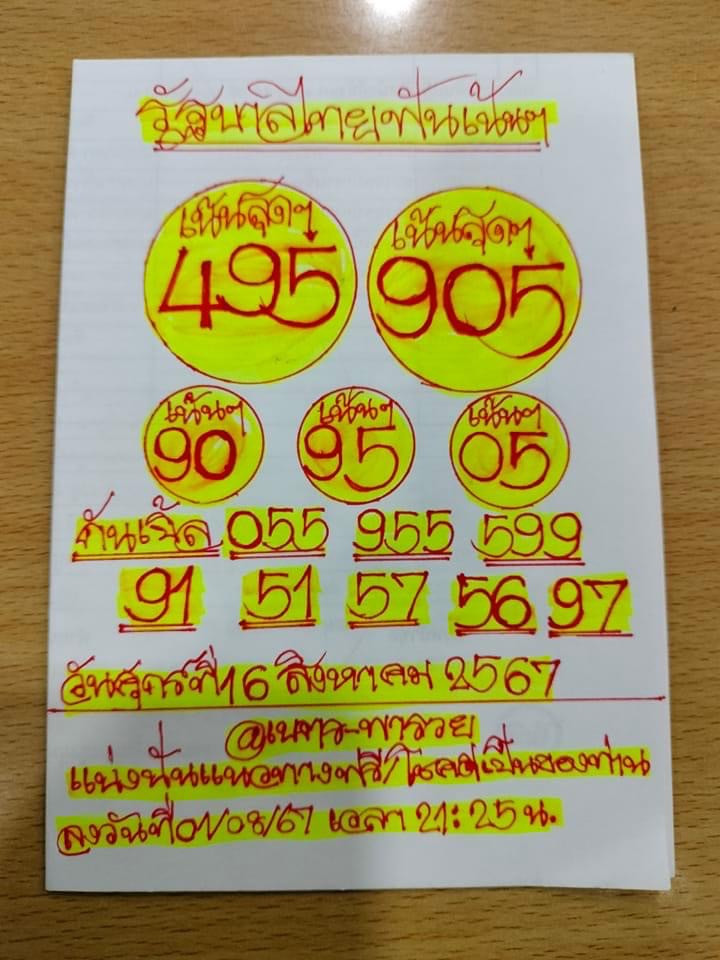 รัฐบาลไทยฟันเน้นๆ
เน้นสุดๆ เน้นสุดๆ
495 905
เน้นๆ เน้นๆ เน้นๆ
90 95 05
กันเบิ้ล 055 955 599
91 51 57 56 97
วันศุกร์ที่16 สิงหาคม 2567
@เนตร-พารวย
แบ่งปันแนวทางฟรี/โชคดีเป็นของท่าน
ลงวันที่01/08/67 เวลา 21:25น.